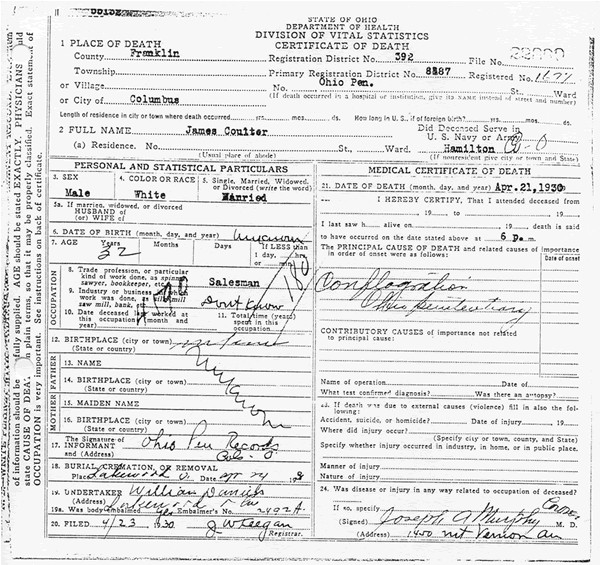 STATE OF OHIO
DEPARTMENT OF HEALTH
DIVISION OF VITAL STATISTICS
CERTIFICATE OF DEATH
1 PLACE OF DEATH
County Franklin Registration District No. 392 File No.
Township Primary Registration District No. 8887 Registered No.
or Village No. Ohio Pen. St., Ward
(If death occurred in a hospital or institution, give its NAME instead of street and number)
or City of Columbus
Length of residence in city or town where death occurred yrs. mos. ds. How long in U.S., if of foreign birth? yrs. mos. ds.
2 FULL NAME James Coulter Did Deceased Serve in U. S. Navy or Army
(a) Residence. No. St., Ward. Hamilton O
(Usual place of abode) (If nonresident give city or town and State)
PERSONAL AND STATISTICAL PARTICULARS
3. SEX
Male
4. COLOR OR RACE
White
5. Single, Married, Widowed, or Divorced (write the word)
Married
5a. If married, widowed, or divorced
HUSBAND of
(or) WIFE of
6. DATE OF BIRTH (month, day, and year) Unknown
7. AGE Years Months Days If LESS than
1 day, hrs.
or min.
32
OCCUPATION
8. Trade, profession, or particular
kind of work done, as spinner,
sawyer, bookkeeper, etc. Salesman
9. Industry or business in which
work was done, as silk mill
saw mill, bank, etc. Dont Know
10. Date deceased last worked at
this occupation (month and
year)
11. Total time (years)
spent in this
occupation
12. BIRTHPLACE (city or town)
(State or country)
FATHER
13. NAME
14. BIRTHPLACE (city or town)
(State or country)
Unknown
MOTHER
15. MAIDEN NAME
16. BIRTHPLACE (city or town)
(State or country)
17. The Signature of
INFORMANT Ohio Pen Records
and (Address) Cols. O
18. BURIAL, CREMATION, OR REMOVAL
Place O. Date
19. UNDERTAKER William
(Address)
19a. Was body embalmed Yes Embalmer's No. 2492A.
20. FILED 4/23 1930 J W Keegan
Registrar.
MEDICAL CERTIFICATE OF DEATH
21. DATE OF DEATH (month, day, and year) Apr. 21, 1930
I HEREBY CERTIFY, That I attended deceased from
, 19 to , 19
I last saw h alive on , 19 death is said
to have occurred on the date stated above at 6 p. m.
The PRINCIPAL CAUSE OF DEATH and related causes of importance
in order of onset were as follows: Date of onset
Conflagration
Ohio Penitentiary
CONTRIBUTORY CAUSES of importance not related
to principal cause:
Name of operation Date of
What test confirmed diagnosis? Was there an autopsy?
23. If death was due to external causes (violence) fill in also the following:
Accident, suicide, or homicide? Date of injury 19
Where did injury occur?
(Specify city or town, county, and State)
Specify whether injury occurred in industry, in home, or in public place.
Manner of injury
Nature of injury
24. Was disease or injury in any way related to occupation of deceased?
If so, specify
(Signed) Joseph A Murphy M. D.
(Address) 1400 Mt Vernon Av